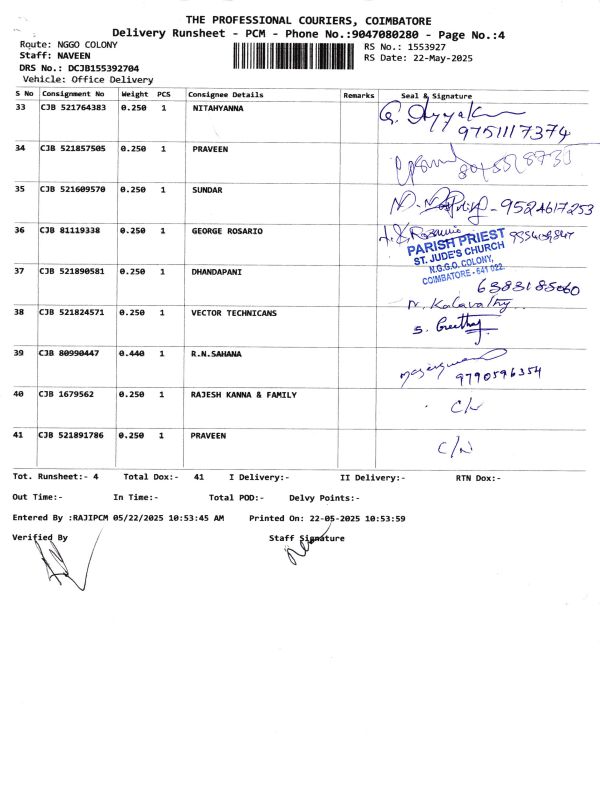 THE PROFESSIONAL COURIERS, COIMBATORE
Delivery Runsheet - PCM - Phone No.:9047080280 - Page No.:4
Route: NGGO COLONY
RS No.: 1553927
Staff: NAVEEN
RS Date: 22-May-2025
DRS No.: DCJB155392704
Vehicle: Office Delivery
S No Consignment No Weight PCS Consignee Details Remarks Seal & Signature
33 CJB 521764383 0.250 1 NITAHYANNA
9751117374
34 CJB 521857505 0.250 1 PRAVEEN
35 CJB 521609570 0.250 1 SUNDAR
9524617253
36 CJB 81119338 0.250 1 GEORGE ROSARIO
PARISH PRIEST
ST. JUDE'S CHURCH
N.G.G.O. COLONY,
COIMBATORE - 641 022.
37 CJB 521890581 0.250 1 DHANDAPANI
6383185060
N. Kalavathy
38 CJB 521824571 0.250 1 VECTOR TECHNICANS
S.
39 CJB 80990447 0.440 1 R.N.SAHANA
9790596354
40 CJB 1679562 0.250 1 RAJESH KANNA & FAMILY
41 CJB 521891786 0.250 1 PRAVEEN
C/N
Tot. Runsheet:- 4 Total Dox:- 41 I Delivery:- II Delivery:- RTN Dox:-
Out Time:- In Time:- Total POD:- Delvy Points:-
Entered By :RAJIPCM 05/22/2025 10:53:45 AM Printed On: 22-05-2025 10:53:59
Verified By Staff Signature